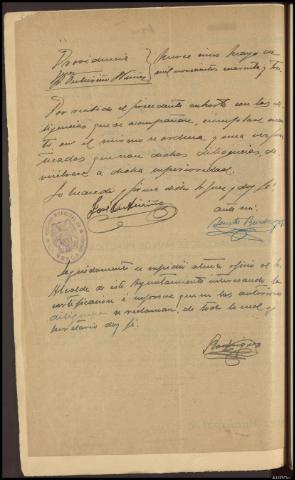 Providencia
Juez
mayo de
mil novecientos cuarenta y tres
Por recibido el precedente exhorto con las di-
ligencias que se acompañan, cumplase cuan-
to en el mismo se ordena, y una vez prac-
ticadas que sean dichas diligencias, de-
vuelvase a dicha superioridad.
Lo mandó y firma dicho Sr. Juez, doy fé.
ante mi
Seguidamente se expidió atento oficio al Sr.
Alcalde de este Ayuntamiento interesando la
certificación é informe que en las anteriores
diligencias se reclaman, de todo lo cual yo
secretario doy fé.